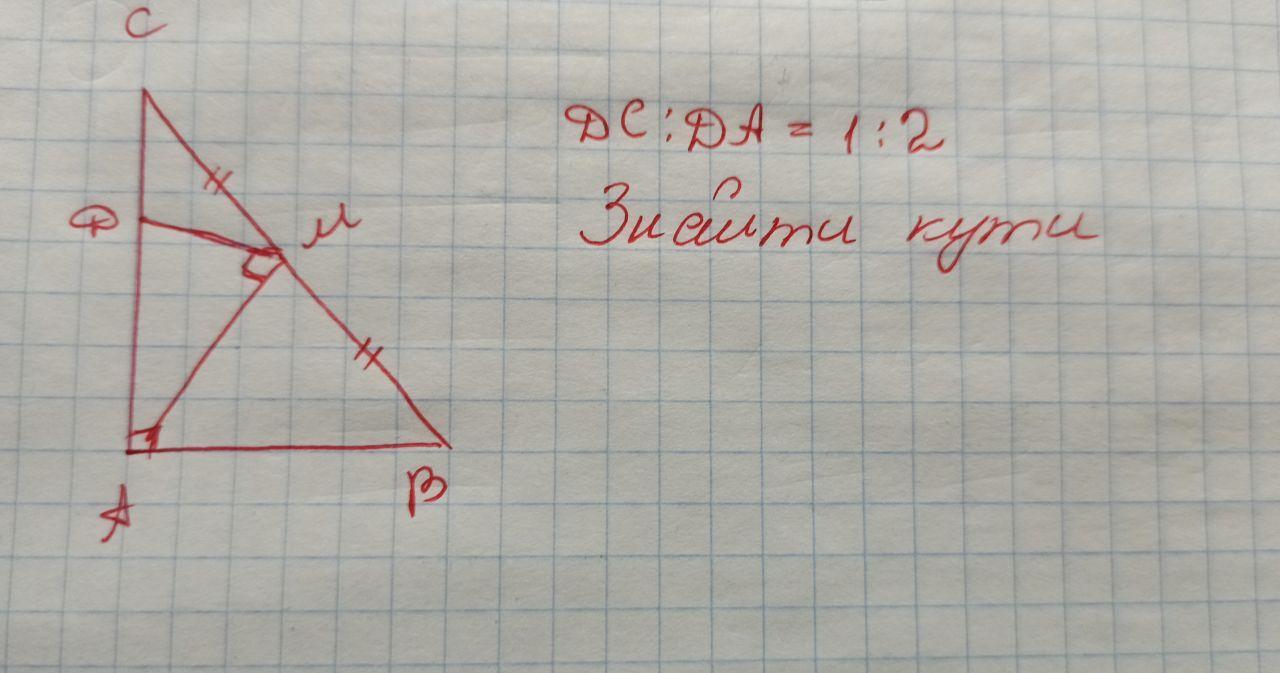 C
DC : DA = 1 : 2
D
M
Знайти кути
A
B